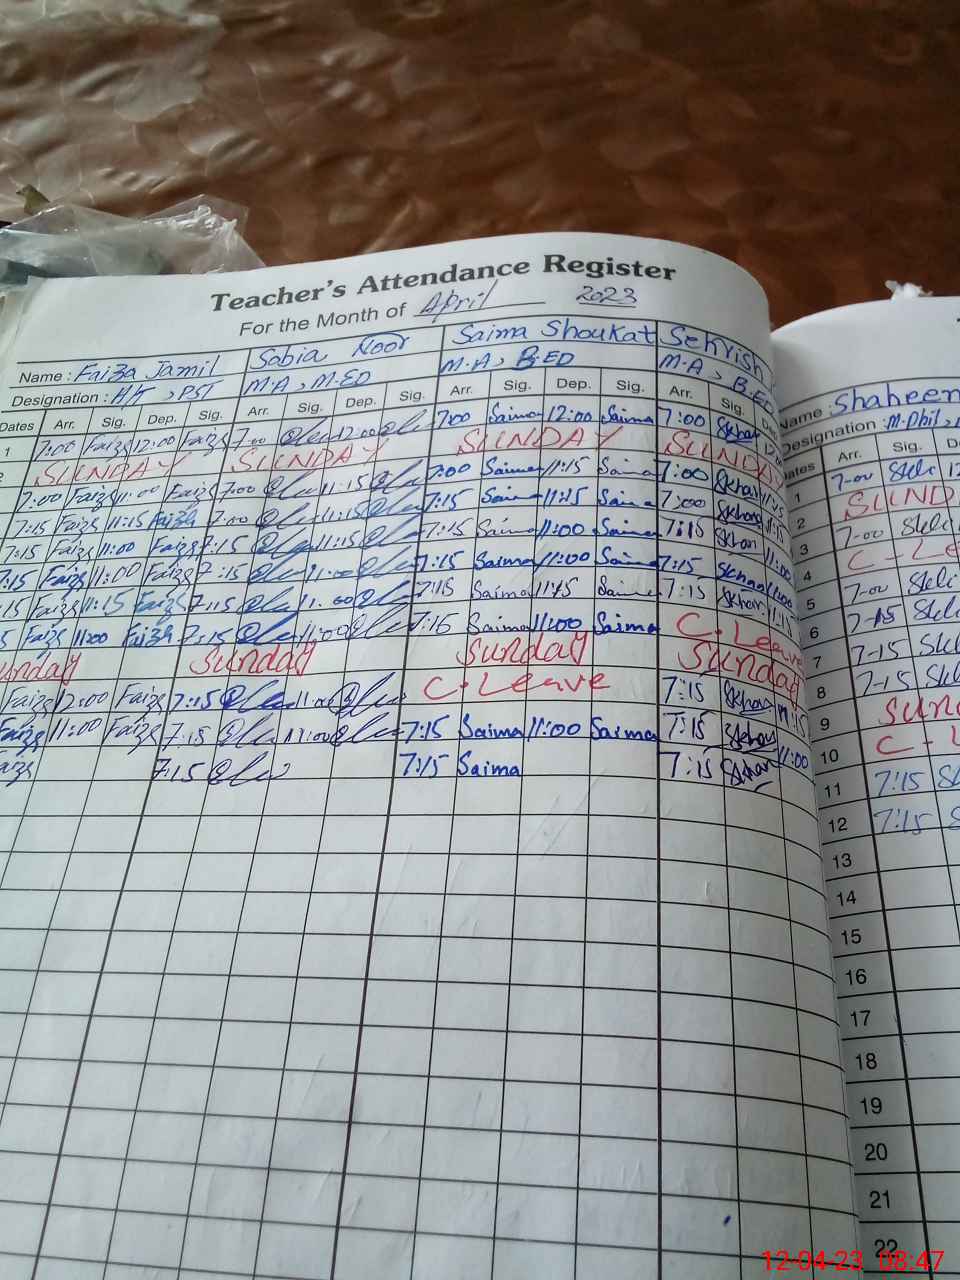 Teacher's Attendance Register
For the Month of April 2023
Name : Faiza Jamil Sobia Noor Saima Shoukat Sehrish
Designation : H/T, PST M.A, M.ED M.A, B.ED M.A, B.ED
Dates Arr. Sig. Dep. Sig. Arr. Sig. Dep. Sig. Arr. Sig. Dep. Sig. Arr. Sig. Dep
1 7:00 Faiza 12:00 Faiza 7:00 12:00 7:00 Saima 12:00 Saima 7:00
2 SUNDAY SUNDAY SUNDAY SUNDAY
7:00 Faiza 11:00 Faiza 7:00 11:15 7:00 Saima 11:15 Saima 7:00 11:15
7:15 Faiza 11:15 Faiza 7:00 11:15 7:15 Saima 11:15 Saima 7:00 11:15
7:15 Faiza 11:00 Faiza 7:15 11:15 7:15 Saima 11:00 Saima 7:15 11:00
7:15 Faiza 11:00 Faiza 7:15 11:00 7:15 Saima 11:00 Saima 7:15 11:00
:15 Faiza 11:15 Faiza 7:15 11:00 7:15 Saima 11:15 Saima 7:15 11:15
Faiza 11:00 Faiza 7:15 11:00 7:15 Saima 11:00 Saima C. Leave
Sunday Sunday Sunday Sunday
Faiza 12:00 Faiza 7:15 11:00 C. Leave 7:15 11:15
Faiza 11:00 Faiza 7:15 11:00 7:15 Saima 11:00 Saima 7:15 11:00
7:15 7:15 Saima 7:15
Name : Shaheen
Designation : M.Phil,
Dates Arr. Sig. D
1 7-00
2 SUND
3 7-00
4 C - Le
5 7-00
6 7-15
7 7-15
8 7-15
9 Sun
10 C - L
11 7:15
12 7:15
13
14
15
16
17
18
19
20
21
22
12-04-23 08:47